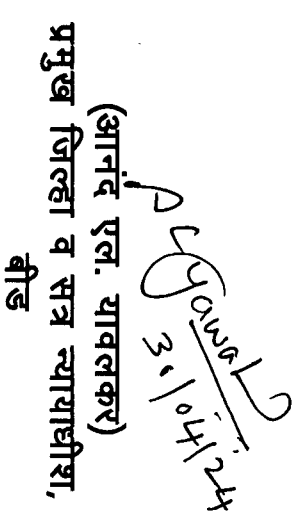 30/04/24
(आनंद एल. यावलकर)
प्रमुख जिल्हा व सत्र न्यायाधीश,
बीड